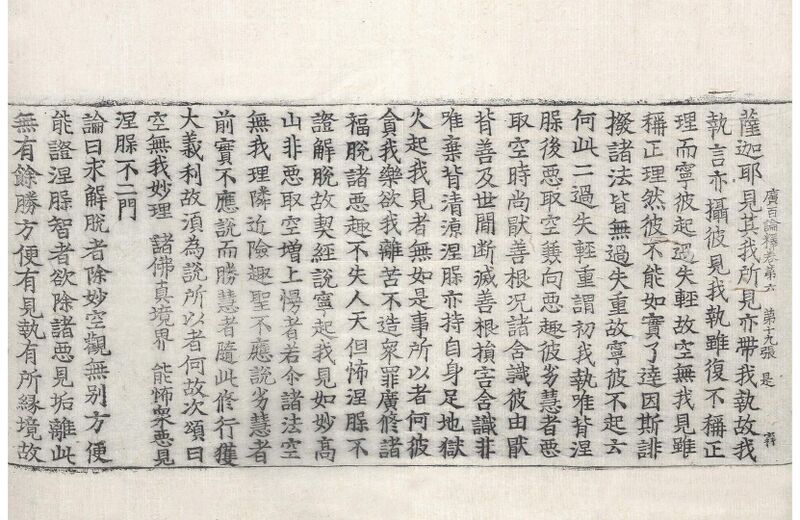 廣百論釋卷第六 第十九張 是
薩迦耶見其我所見亦帶我執故我
執言亦攝彼見我執雖復不稱正
理而寧彼起過失輕故空無我見雖
稱正理然彼不能如實了達因斯誹
撥諸法皆無過失重故寧彼不起云
何此二過失輕重謂初我執唯背涅
槃後悪取空兼向悪趣彼劣慧者悪
取空時尚猒善根況諸含識彼由猒
背善及世間断滅善根損害含識非
唯棄背清涼涅槃亦持自身足地獄
火起我見者無如是事所以者何彼
貪我樂欲我離苦不造衆罪廣修諸
福脫諸悪趣不失人天但怖涅槃不
證解脫故契經說寧起我見如妙高
山非悪取空增上慢者若尒諸法空
無我理隣近險趣聖不應說劣慧者
前實不應說而勝慧者隨此修行獲
大義利故須為說所以者何故次頌曰
空無我妙理 諸佛真境界 能怖衆悪見
涅槃不二門
論曰求解脫者除妙空觀無別方便
能證涅槃智者欲除諸悪見垢離此
無有餘勝方便有見執有所緣境故